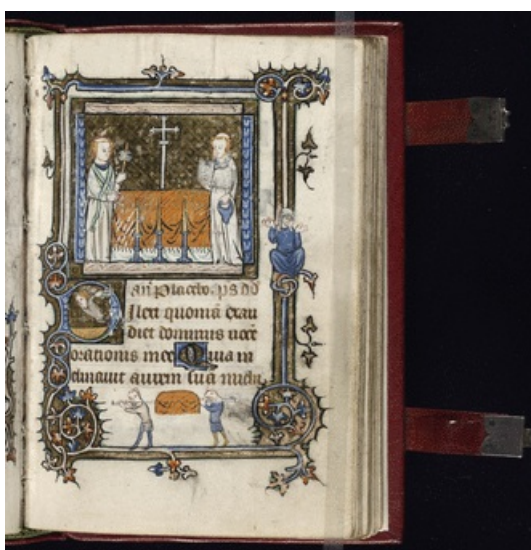 añ Placebo. ps dd
Dilexi quoniā exau
diet dominus uocē
orationis mee Quia in
clinauit aurem suā michi